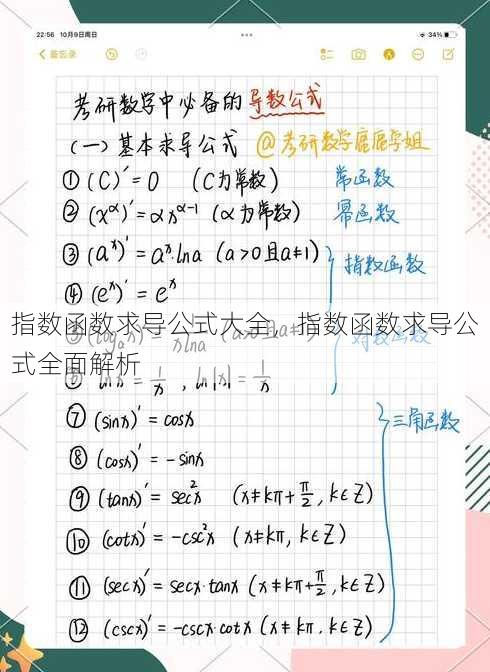 22:56 10月9日周日
34%
备忘录
考研数学中必备的导数公式
(一)基本求导公式 @考研数学鹿鹿学姐
① (C)′=0 (C为常数) 常函数
② (x^α)′=αx^(α-1) (α为常数) 幂函数
③ (a^x)′=a^x·lna (a>0且a≠1)
指数函数
④ (e^x)′=e^x
指数函数求导公式大全、指数函数求导公
式全面解析
⑦ (sinx)′=cosx 三角函数
⑧ (cosx)′=-sinx
⑨ (tanx)′=sec²x (x≠kπ+π/2,k∈Z)
⑩ (cotx)′=-csc²x (x≠kπ,k∈Z)
⑪ (secx)′=secx·tanx (x≠kπ+π/2,k∈Z)
⑫ (cscx)′=-cscx·cotx (x≠kπ.k∈Z)